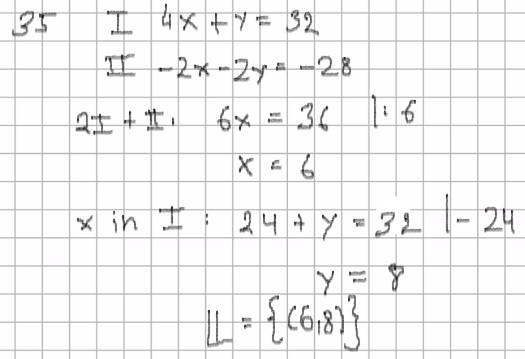 35 I 4x + y = 32
II -2x - 2y = -28
2I + II. 6x = 36 |: 6
x = 6
x in I: 24 + y = 32 | - 24
y = 8
𝕃 = {(6,8)}